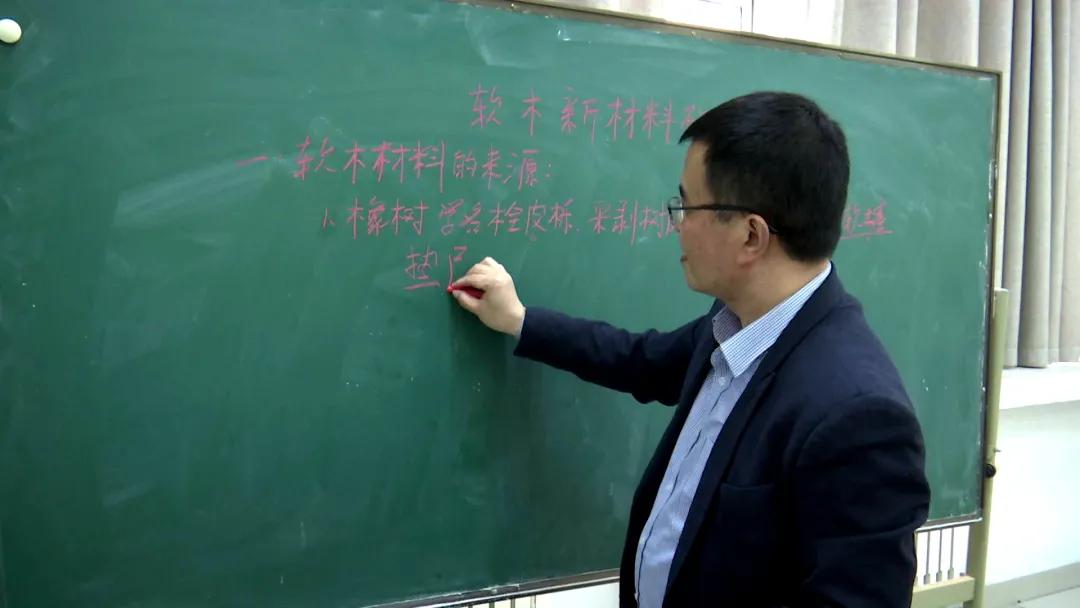 软木新材料
一 软木材料的来源:
1、橡树 学名栓皮栎. 采剥树
垫